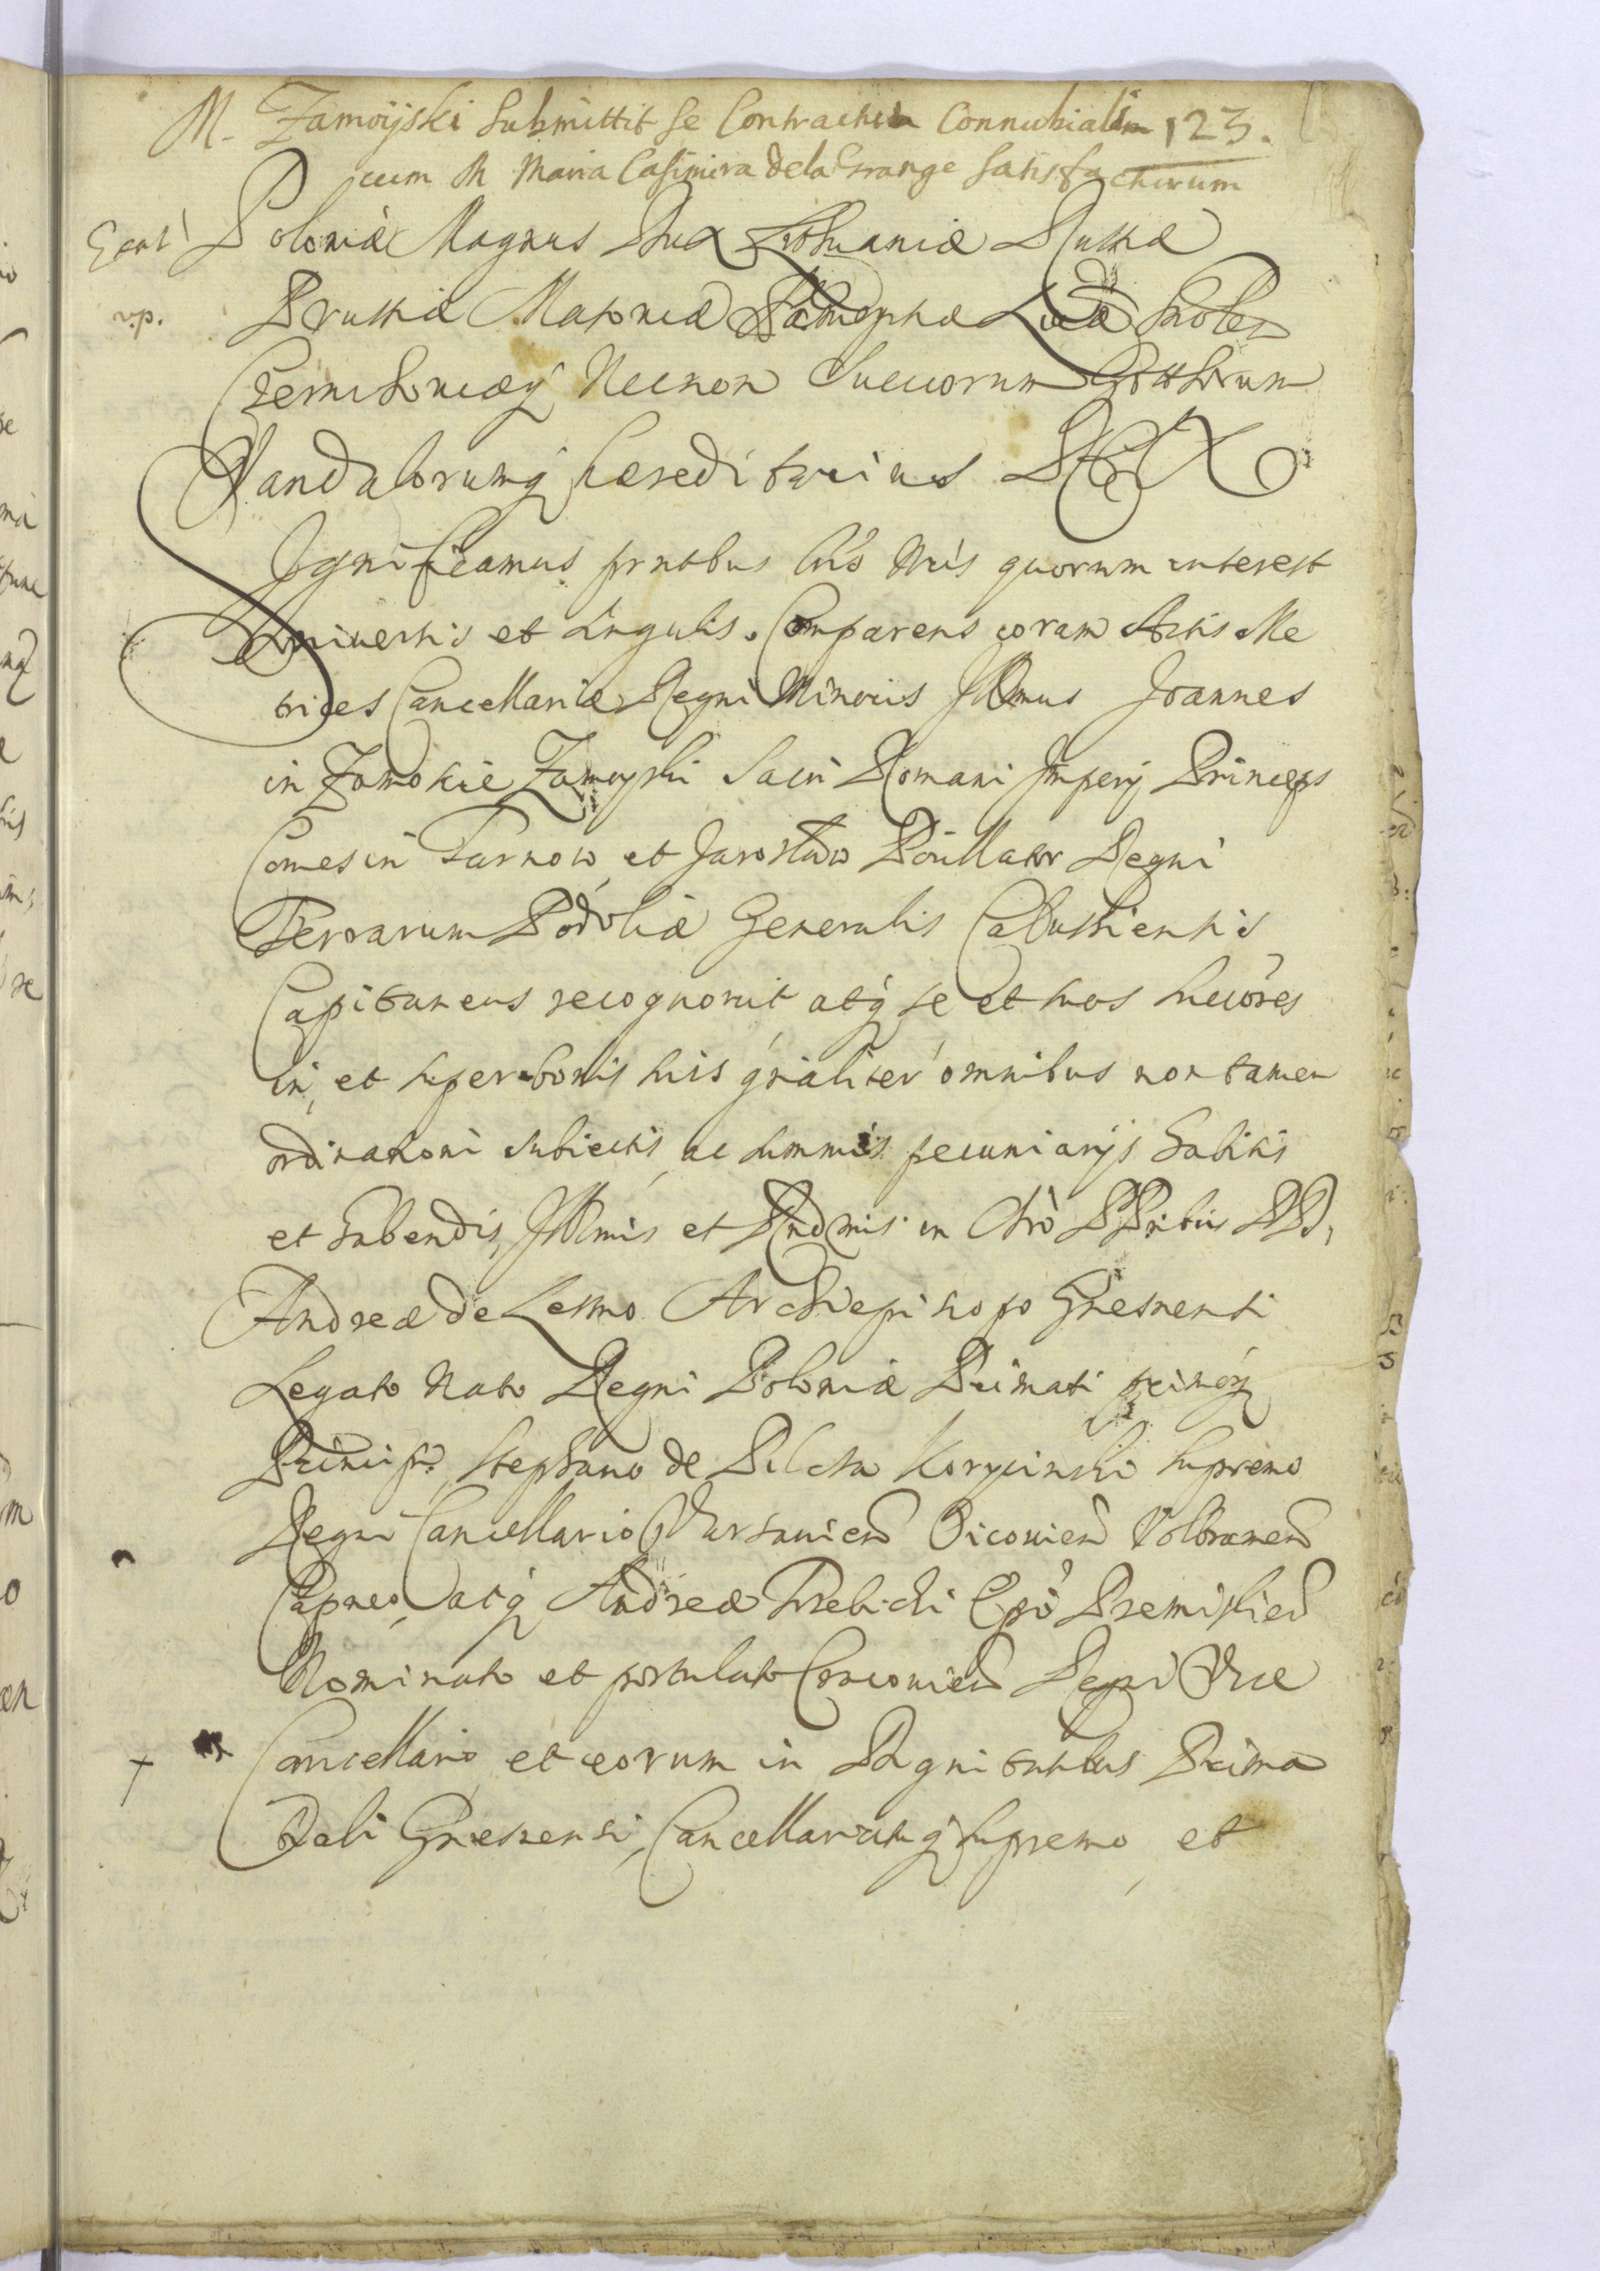 M. Zamoyski Submittit se Contractui Connubiali 123.
cum M Maria Casimira de la Grange satisfacturum
Poloniæ Magnus Dux Lithuaniæ Russiæ
v.p. Prussiæ Masoviæ Samogitiæ Livoniæ Smolen
Czernihoviæq Necnon Suecorum Gotthorum
Vandalorumq hæreditarius REX
Significamus prntbus lris Nris quorum interest
universis et singulis. Comparens coram Actis Me
trices Cancellariæ Regni Minoris Illmus Joannes
in Zamoscie Zamoyski Sacri Romani Imperij Princeps
Comes in Tarnow et Jaroslaw Pocillator Regni
Terrarum Podoliæ Generalis Calussiensis
Capitaneus recognovit atq se et suos succores
in, et super bonis suis gnaliter omnibus non tamen
ordinationi subiectis, ac summis pecuniarijs habitis
et habendis, Illmis et Rndmis in Chro PPribus DD,
Andreæ de Lesno Archiepiscopo Gnesnensi
Legato Nato Regni Poloniæ Primati primoq
Principi, Stephano de Pilcza Korycinski Supremo
Regni Cancellario Varsavien Oicovien Volbramen
Capneo, atq Andreæ Trzebicki Epo Premislien
Nominato et postulato Cracovien Regni Vice
+ Cancellario, et eorum in Dignitatibus Prima
tiali Gnesnensi, Cancellariatuq Supremo, et